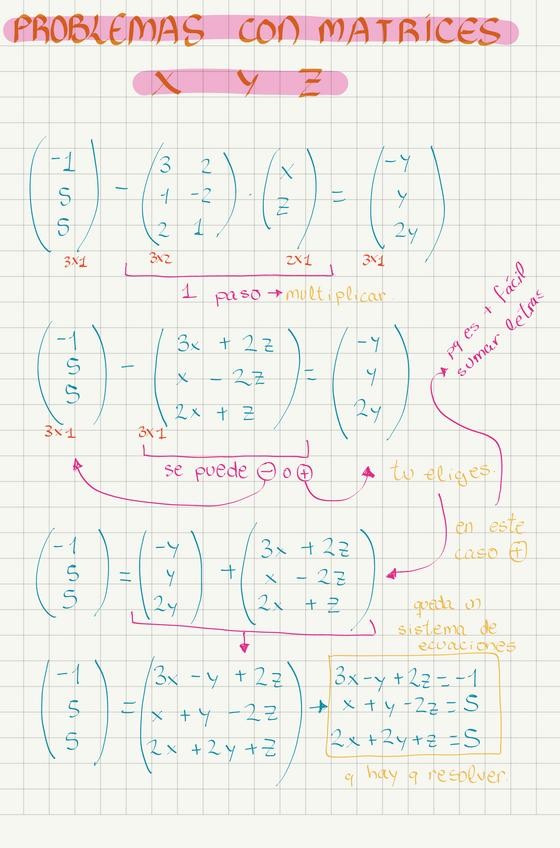 PROBLEMAS CON MATRICES
X Y Z
(-1 5 5) - (3 2 1 -2 2 1) · (x z) = (-y y 2y)
3x1 3x2 2x1 3x1
1 paso → multiplicar.
pq es + fácil
sumar letras
(-1 5 5) - (3x + 2z x - 2z 2x + z) = (-y y 2y)
3x1 3x1
se puede ⊖ o ⊕ tu eliges.
en este
caso ⊕
(-1 5 5) = (-y y 2y) + (3x + 2z x - 2z 2x + z)
queda un
sistema de
ecuaciones
(-1 5 5) = (3x - y + 2z x + y - 2z 2x + 2y + z) →
3x - y + 2z = -1
x + y - 2z = 5
2x + 2y + z = 5
q hay q resolver.